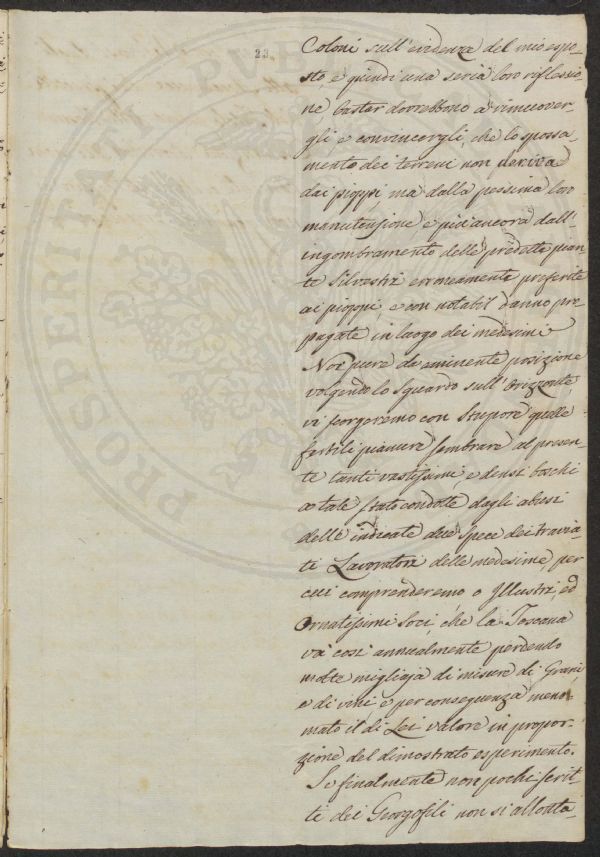 23.
Coloni sull'evidenza del mio espo=
sto, e quindi una seria loro riflessio
ne baster dovrebbono a rimuover=
gli e convincergli, che lo sposса=
mento dei terreni non deriva
dai pioppi ma dalla pessima loro
manutensione e più ancora dall'
ingombramento delle predette pian=
te Silvestri erroneamente preferite
ai pioppi, e con notabil danno pro
pagate in luogo dei medesimi.
Noi pure da eminente posizione
volgendo lo Sguardo sull'Orizzonte
vi scorgeremo con Stupore quelle
fertili pianure sembrare al presen=
te tanti vastissimi, e densi boschi
a tale stato condotte dagli abusi
delle indicate due Spece dei travia=
ti Lavoratori delle medesime per
cui comprenderemo o Illustri, ed
Ornatissimi Soci, che la Toscana
và così annualmente perdendo
molte migliaja di misure di Grani
e di vini e per conseguenza meno=
mato il di Lei valore in propor=
zione del dimostrato esperimento.
Se finalmente non pochi scrit=
ti dei Georgofili non si allonta=
PROSPERITATI PUBLICAE